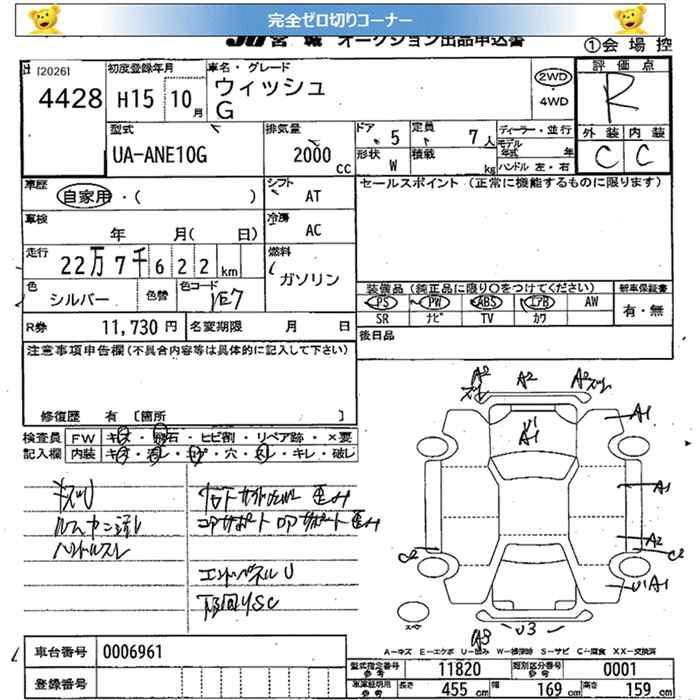 完全ゼロ切りコーナー
JU宮城 オークション出品申込書 ①会場控
[2026]
4428
初度登録年月
H15 10月
車名・グレード
ウィッシュ
G
2WD
4WD
評価点
R
型式
UA-ANE10G
排気量
2000cc
ドア 5
定員 7人
形状 W
積載 kg
ディーラー・並行
モデル年式 年
ハンドル 左・右
外装 内装
C C
車歴
自家用・( )
シフト AT
セールスポイント (正常に機能するものに限ります)
車検
年 月( 日)
冷房 AC
走行
22万7千622km
燃料
ガソリン
色 シルバー
色替
色コード 1E7
装備品 (純正品に限り○をつけてください)
新車保証書
PS PW ABS エアB AW
有・無
SR ナビ TV カワ
R券 11,730円
名変期限 月 日
後日品
注意事項申告欄(不具合内容等は具体的に記入して下さい)
修復歴 有 [箇所 ]
検査員 FW キズ・飛石・ヒビ割・リペア跡・×要
記入欄 内装 キズ・汚レ・コゲ・穴・スレ・キレ・破レ
キズU
ハンドルスレ
コアサポート ロアサポート歪み
エンドパネルU
下回りSC
A2 A2 A2
U1
A1
A1
A1
A2
C2
U1A1
A3 U3
スペアー
A-キズ E-エクボ U-凹み W-補修跡 S-サビ C-腐食 XX-交換済
車台番号 0006961
登録番号
型式指定番号 参考 11820
類別区分番号 参考 0001
車庫証明用 参考 長さ 455cm 幅 169cm 高さ 159cm